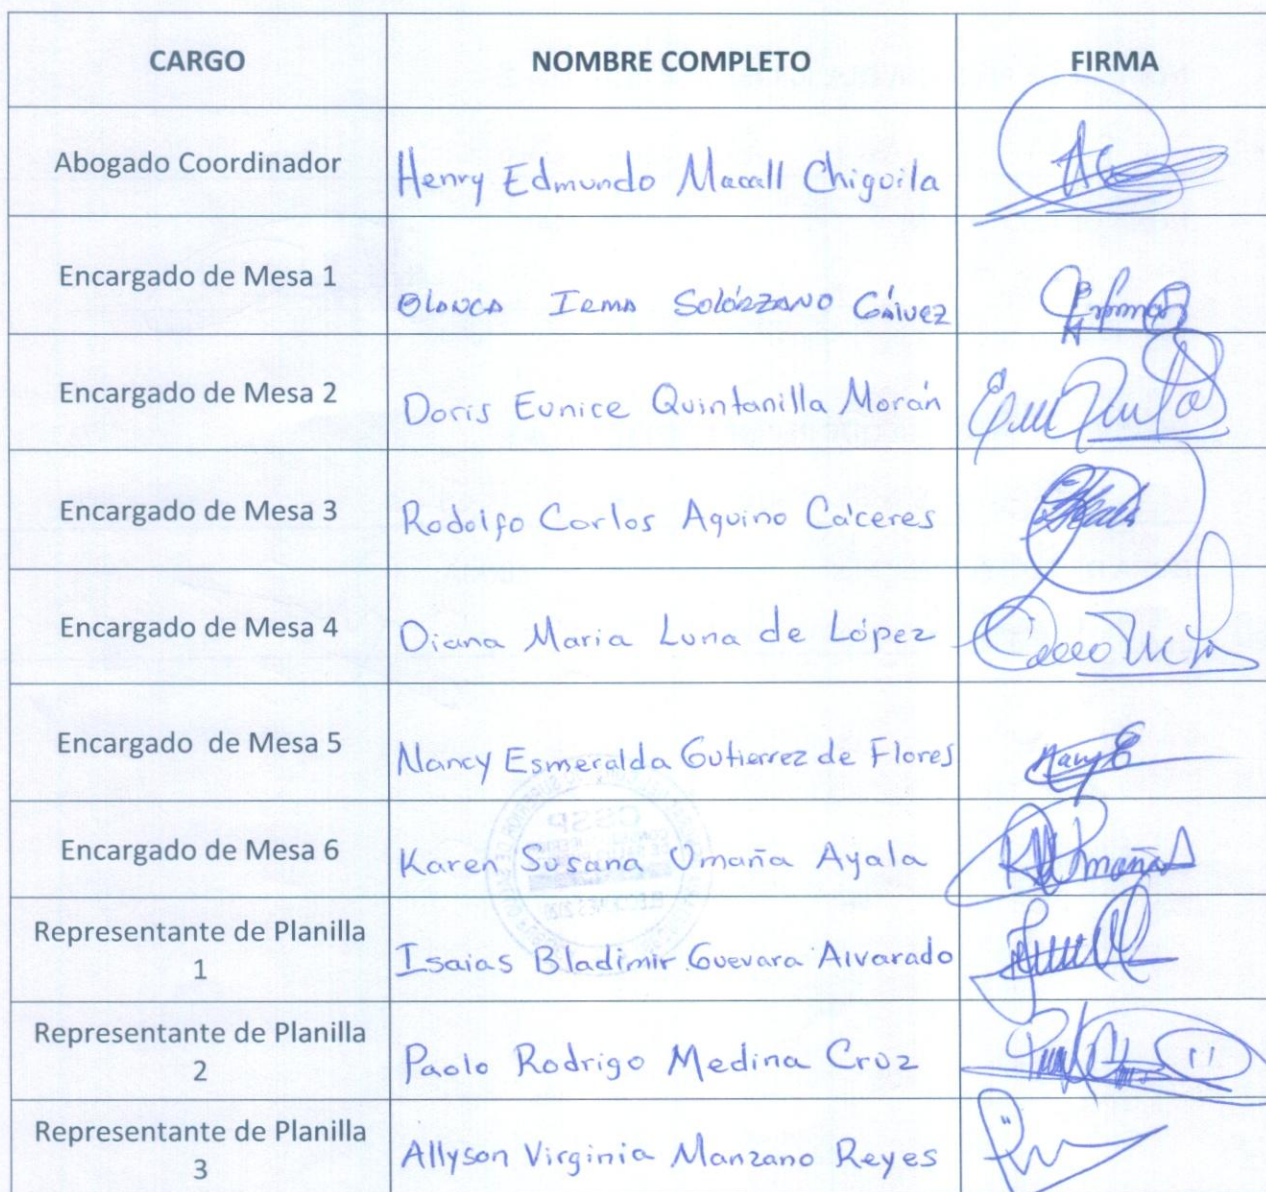 CARGO NOMBRE COMPLETO FIRMA
Abogado Coordinador Henry Edmundo Macall Chigüila
Encargado de Mesa 1 Blanca Irma Solórzano Gálvez
Encargado de Mesa 2 Doris Eunice Quintanilla Morán
Encargado de Mesa 3 Rodolfo Carlos Aquino Cáceres
Encargado de Mesa 4 Diana Maria Luna de López
Encargado de Mesa 5 Nancy Esmeralda Gutierrez de Flores
Encargado de Mesa 6 Karen Susana Umaña Ayala
Representante de Planilla
1 Isaias Bladimir Guevara Alvarado
Representante de Planilla
2 Paolo Rodrigo Medina Cruz
Representante de Planilla
3 Allyson Virginia Manzano Reyes